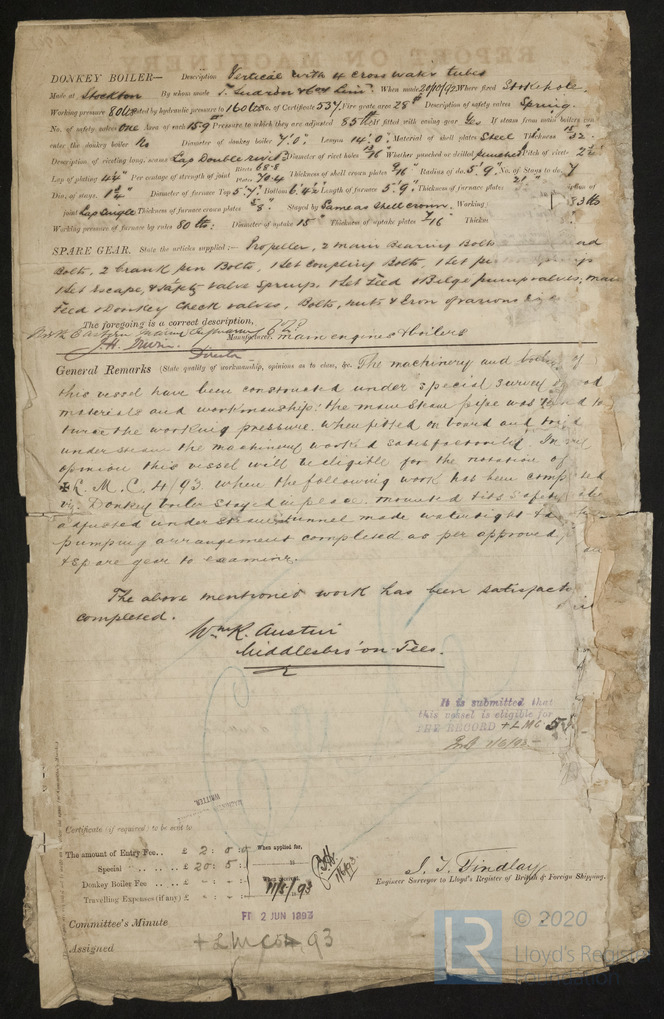 DONKEY BOILER— Description Vertical with 4 cross water tubes
Made at Stockton By whom made T. Sudron & Co Lim. When made 20/10/92 Where fixed Stokehole
Working pressure 80 lbs tested by hydraulic pressure to 160 lbs No. of Certificate 537 Fire grate area 28 Description of safety valves Spring
No. of safety valves One Area of each 15.9 Pressure to which they are adjusted 85 lbs If fitted with easing gear Yes If steam from main boilers can
enter the donkey boiler No Diameter of donkey boiler 7'.0" Length 14'.0" Material of shell plates Steel Thickness 15/32"
Description of riveting long. seams Lap Double rivd Diameter of rivet holes 13/16" Whether punched or drilled punched Pitch of rivets 2
Lap of plating 4 Per centage of strength of joint Rivets 68.8 Plates 70.4 Thickness of shell crown plates 9/16" Radius of do. 5'.9" No. of Stays to do. 7
Dia. of stays. 1 3/4" Diameter of furnace Top 5'.7" Bottom 6'.4 Length of furnace 5'.9" Thickness of furnace plates
joint Lap Single Thickness of furnace crown plates 5/8" Stayed by Same as shell crown. Working 83 lbs
Working pressure of furnace by rules 80 lbs: Diameter of uptake 15" Thickness of uptake plates 7/16" Thickn
SPARE GEAR. State the articles supplied:— Propeller, 2 main Bearing Bolts
Bolts, 2 Crank pin Bolts, 1 Set Coupling Bolts, 1 Set
1 Set Escape, & Safety valve Springs. 1 Set Feed & Bilge pump valves, main
Feed & Donkey Check valves, Bolts, nuts & Iron of various
The foregoing is a correct description,
North Eastern Marine Engineering Co Ld Manufacturer. main engines & boilers
General Remarks (State quality of workmanship, opinions as to class, &c. The machinery and boilers of
this vessel have been constructed under special survey of good
materials and workmanship: the main steam pipe was tested to
twice the working pressure. When fitted on board and tried
under steam the machinery worked satisfactorily. In my
opinion this vessel will be eligible for the notation of
✠ L. M. C. 4/93 when the following work has been completed
viz: Donkey boiler stayed in place. mounted & its safety
adjusted under steam: tunnel made watertight &
pumping arrangement completed as per approved
& spare gear to examine.
The above mentioned work has been satisfact
completed.
Wm R. Austin
Middlesbro' on Tees.
It is submitted that
this vessel is eligible for
THE RECORD + LMC 5
Certificate (if required) to be sent to
The amount of Entry Fee.. £ 2 : 0 : 0 When applied for,
Special .. £ 20 : 5 :
Donkey Boiler Fee £ When received,
Travelling Expenses (if any) £ 11/5/93
J. T. Findlay
Engineer Surveyor to Lloyd's Register of British & Foreign Shipping.
Committee's Minute FRI 2 JUN 1893
Assigned + LMC 93
LR © 2020
Lloyd's Register
Foundation